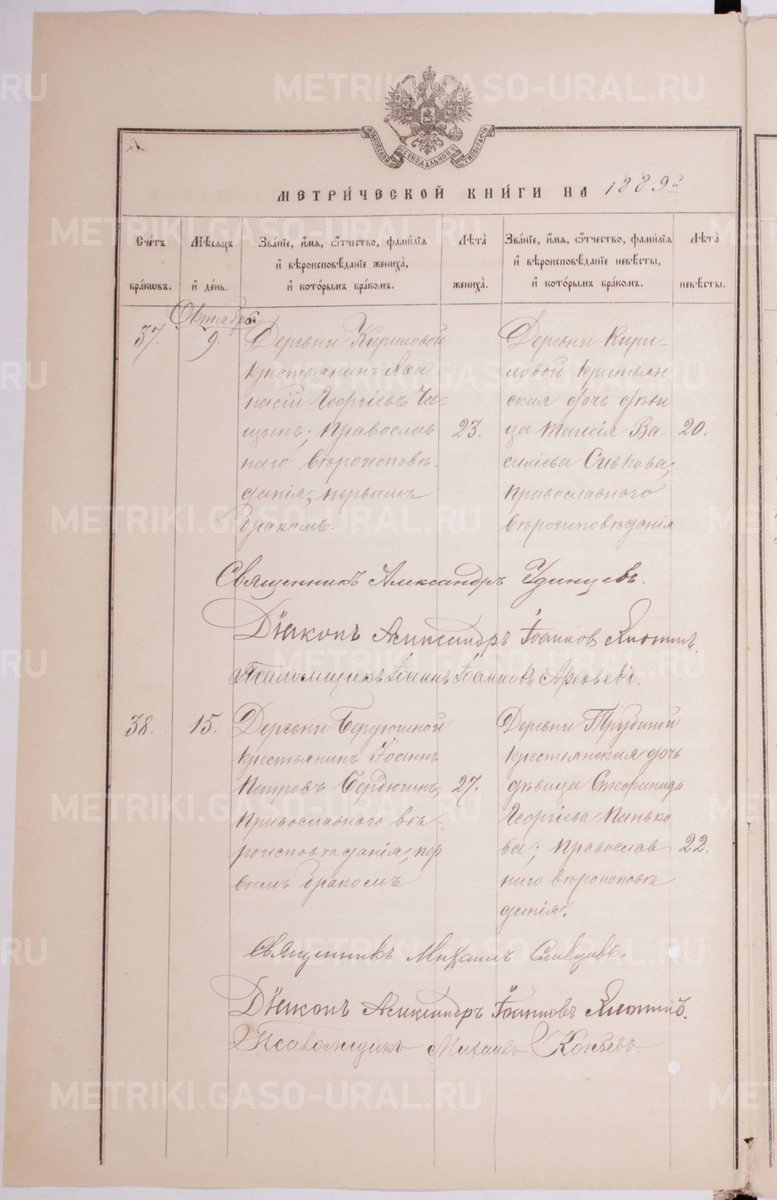 МЕТРИ́ЧЕСКОЙ КНИ́ГИ НА 1889й
Сче́тъ бра́кωвъ.
Мѣ́сяцъ и҆ де́нь.
Зва́нїе, и҆́мя, ѻ҆́тчество, фами́лїя и҆ вѣроисповѣ́данїе жениха̀, и҆ кото́рымъ бра́комъ.
Лѣ́та жениха̀.
Зва́нїе, и҆́мя, ѻ҆́тчество, фами́лїя и҆ вѣроисповѣ́данїе невѣ́сты, и҆ кото́рымъ бра́комъ.
Лѣ́та невѣ́сты.
Октябрь
37.
9.
Деревни Кириловой
крестьянинъ Аѳа-
насій Георгіевъ
православ
наго вѣроисповѣ-
данія, первымъ
бракомъ.
23.
Деревни Кири-
ловой крестьян-
ская дочь дѣви-
ца Таисія Ва-
силіева Сивкова;
православнаго
вѣроисповѣданія
20.
Священникъ Александръ Удинцевъ.
Діаконъ Александръ Іоанновъ
Псаломщикъ Іоаннъ Іоанновъ Арефьевъ.
38.
15.
Деревни Бердюгиной
крестьянинъ Іосифъ
Петровъ Бердюгинъ,
православнаго вѣ-
роисповѣданія, пер
вымъ бракомъ
27.
Деревни Трубиной
крестьянская дочь
дѣвица Стефанида
Георгіева Панько
ва; православ
наго вѣроисповѣ
данія.
22.
Священникъ Михаилъ Славцовъ.
Діаконъ Александръ Іоанновъ
Псаломщикъ Михаилъ Коньевъ.
METRIKI.GASO-URAL.RU